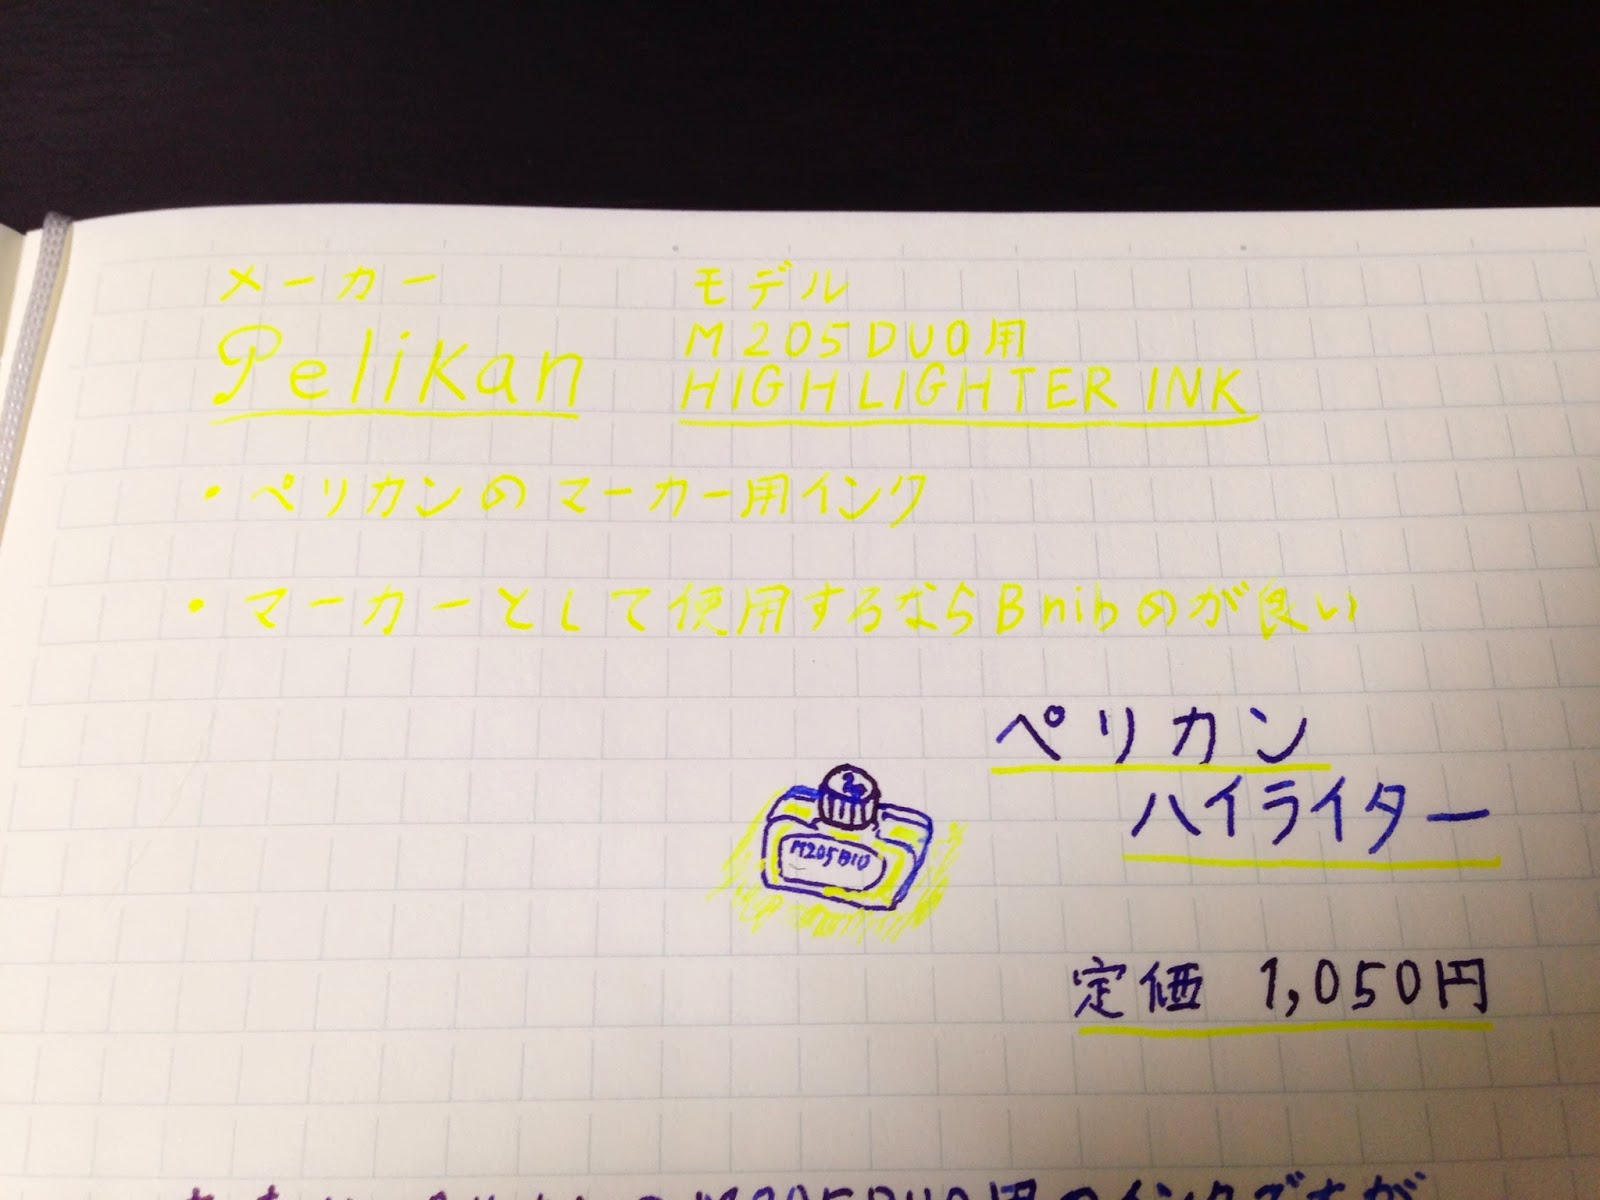 メーカー
Pelikan
モデル
M205DUO用
HIGHLIGHTER INK
・ペリカンのマーカー用インク
・マーカーとして使用するならBnibのが良い
ペリカン
ハイライター
M205DUO
定価 1,050円